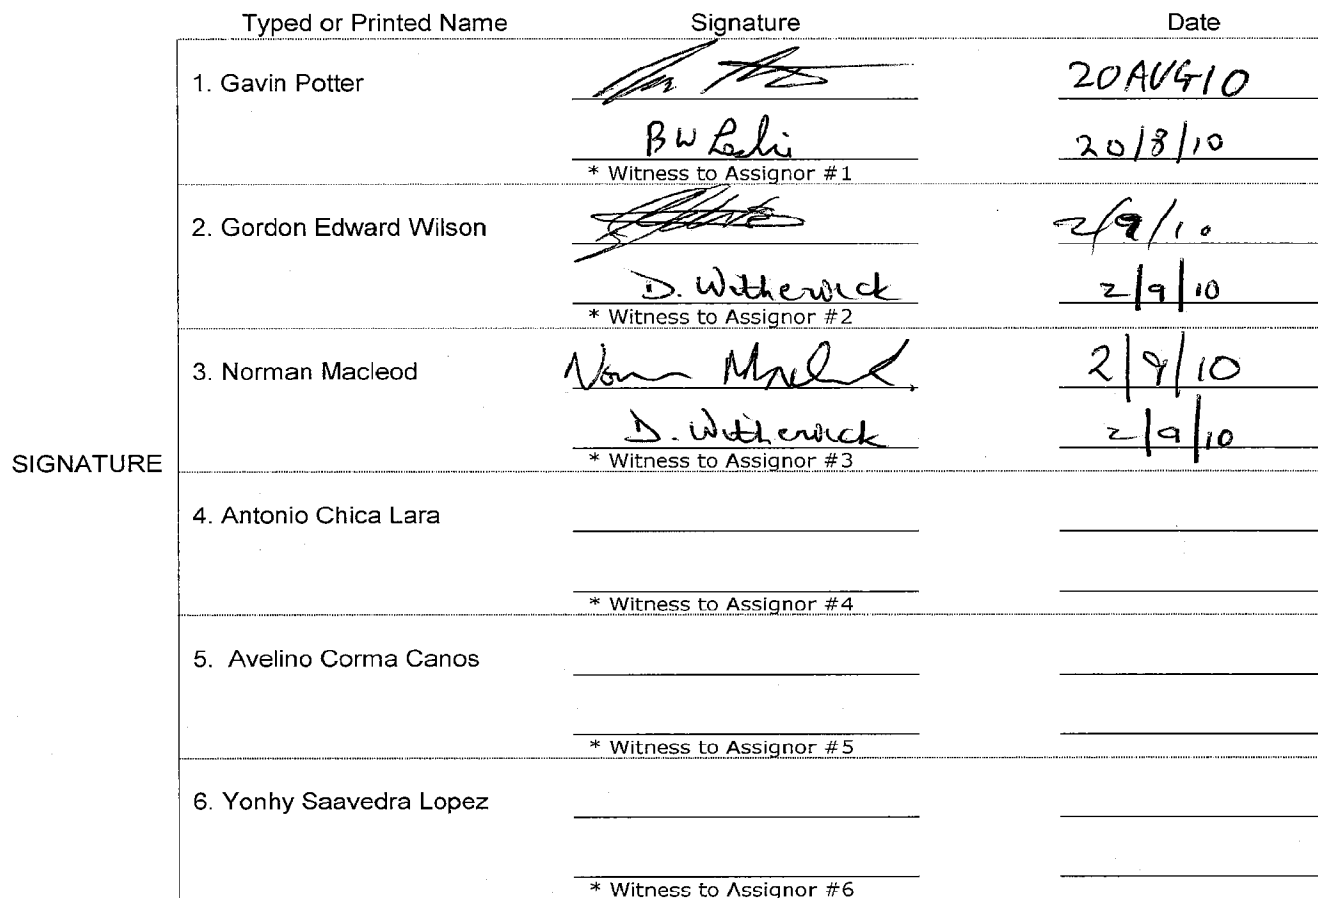 Typed or Printed Name Signature Date
1. Gavin Potter 20AUG10
BW 20/8/10
* Witness to Assignor #1
2. Gordon Edward Wilson 2/9/10
D. Witherwick 2/9/10
* Witness to Assignor #2
3. Norman Macleod Norman Macleod 2/9/10
D. Witherwick 2/9/10
* Witness to Assignor #3
SIGNATURE
4. Antonio Chica Lara
* Witness to Assignor #4
5. Avelino Corma Canos
* Witness to Assignor #5
6. Yonhy Saavedra Lopez
* Witness to Assignor #6